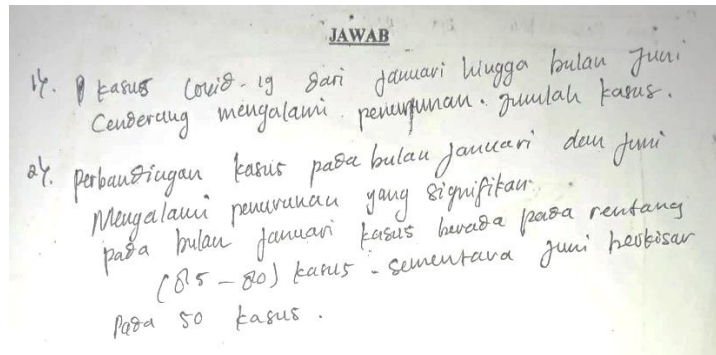 JAWAB
1). kasus Covid-19 dari januari hingga bulan Juni
Cenderung mengalami penurunan. Jumlah kasus.
2). perbandingan kasus pada bulan januari dan juni
Mengalami penurunan yang signifikan.
pada bulan januari kasus berada pada rentang
(85-80) kasus - sementara juni berkisar
Pada 50 kasus.